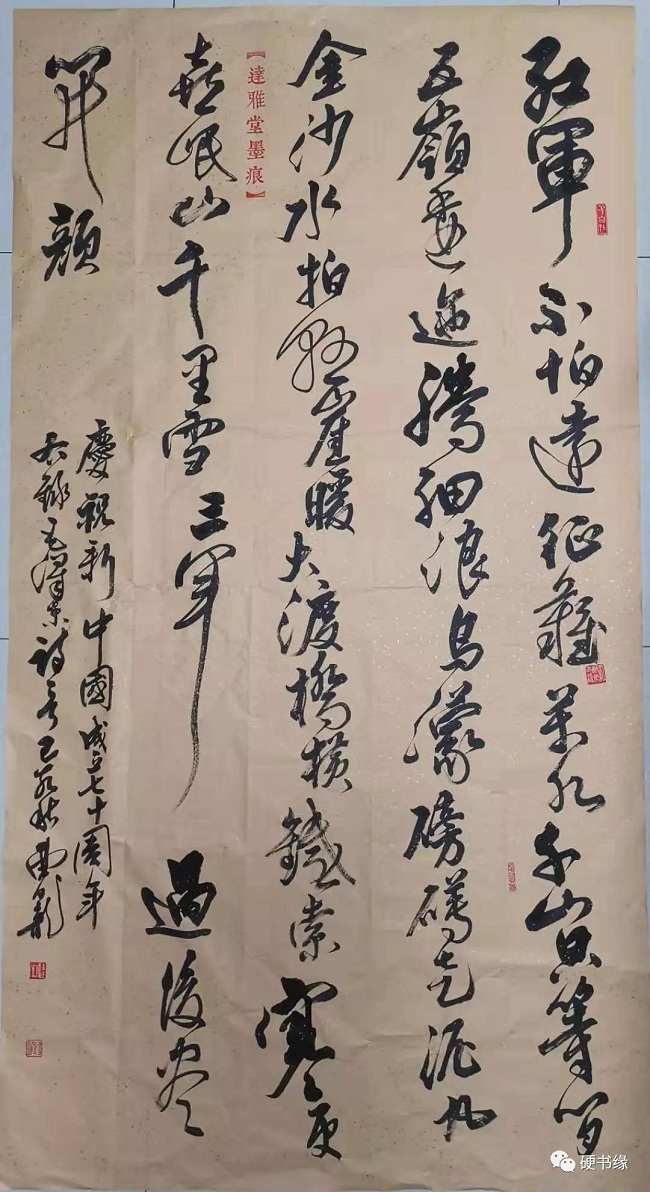 紅軍不怕遠征難萬水千山只等閑
五嶺逶迤騰細浪烏濛磅礴走泥丸
金沙水拍雲崖暖大渡橋橫鐵索寒更
【達雅堂墨痕】
喜岷山千里雪三軍過後盡
開顏
慶祝新中國成立七十周年
右錄毛澤東詩己亥秋
硬书缘